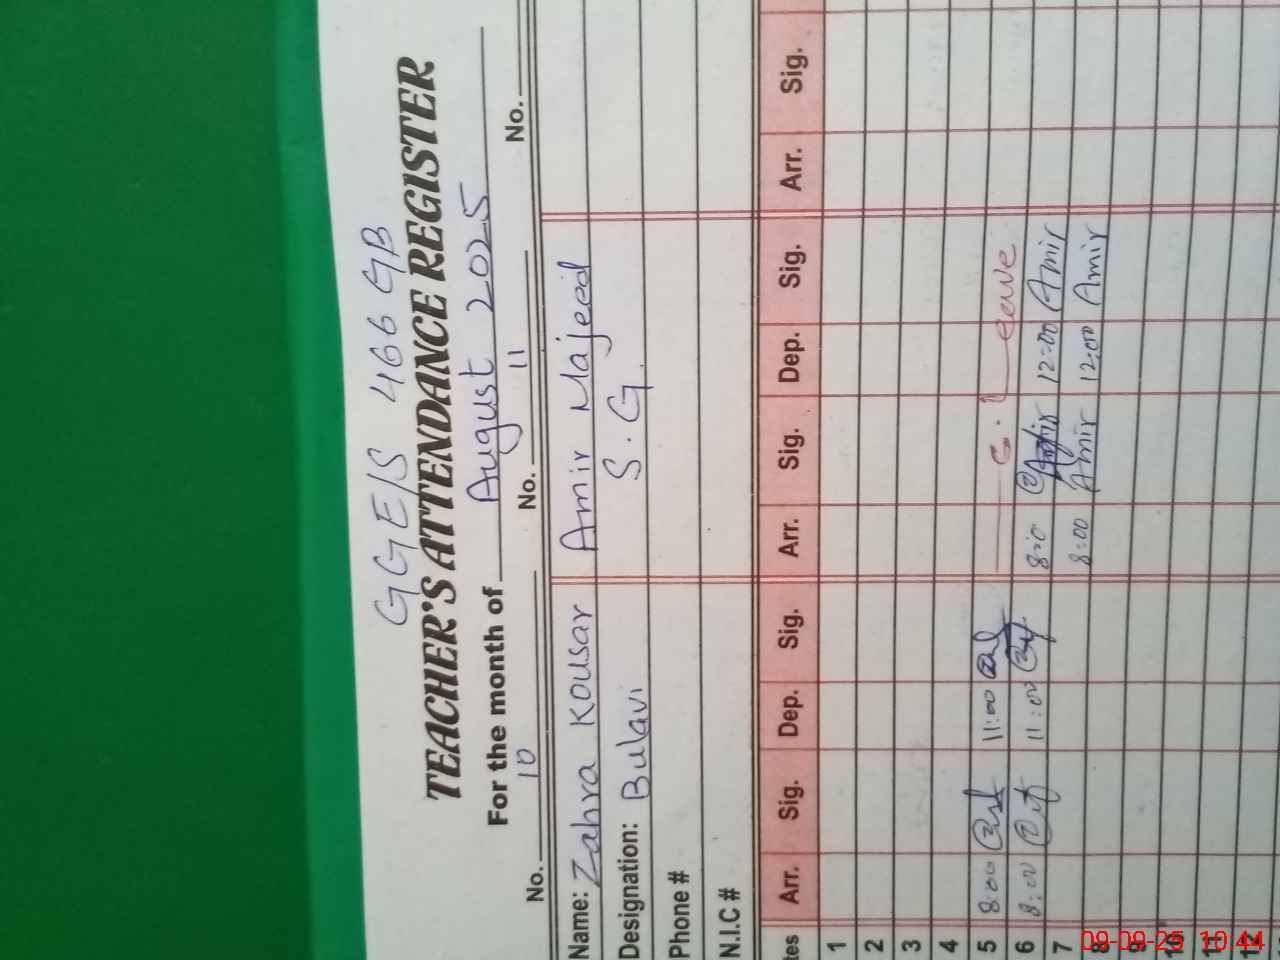 GGE/S 466 GB
TEACHER'S ATTENDANCE REGISTER
For the month of August 2025
No. 10 No. 11 No.
Name: Zahra Kousar Amir Majeed
Designation: Bulavi S.G
Phone #
N.I.C #
tes Arr. Sig. Dep. Sig. Arr. Sig. Dep. Sig. Arr. Sig.
1
2
3
4
5 8:00 11:00 eave
6 8:00 11:00 8:0 12:00 Amir
7 8:00 Amir 12:00 Amir
8
9
10
11
12
09-09-25 10:44